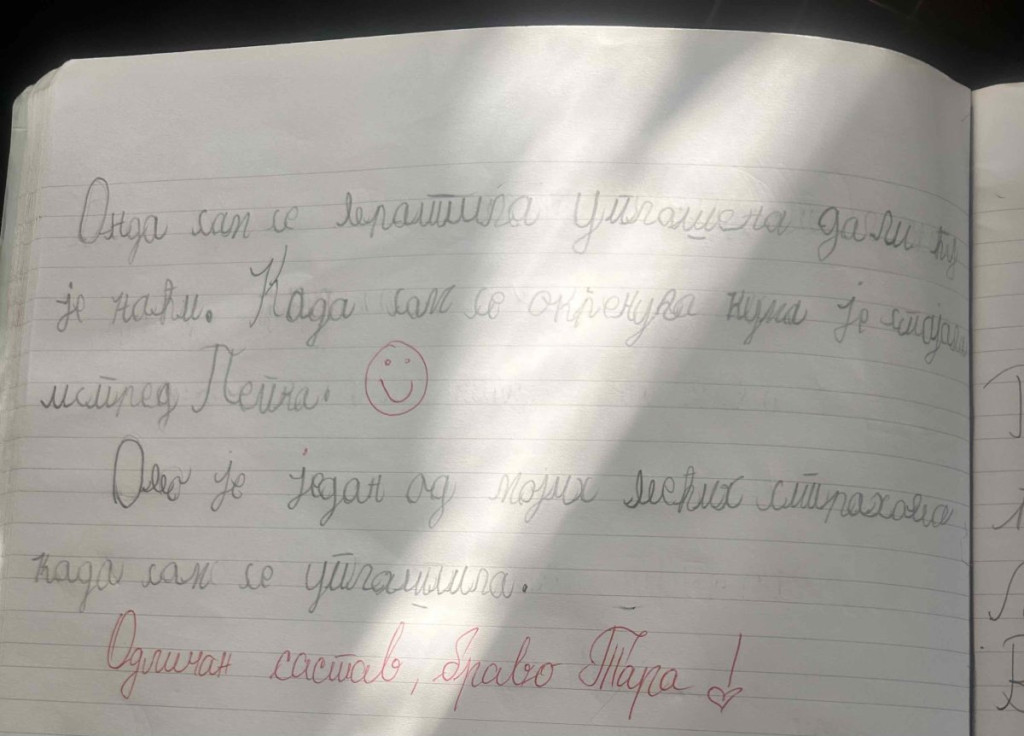 Онда сам се вратила уплашена да ли ћу
је наћи. Када сам се окренула кума је стајала
испред Пејна.
Ово је један од мојих већих страхова
када сам се уплашила.
Одличан састав, браво Тара!